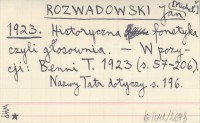 ROZWADOWSKI Jan
1923. Historyczna fonetyka
czyli głosownia. — W pozy-
cji: Benni T. 1923 (s. 57-206).
Nazwy Tatr dotyczy s. 196.
WHP